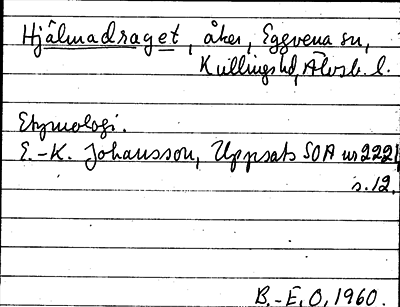 Hjälmadraget, åker, Eggvena sn,
Kullings hd, Älvsb. l.
Etymologi.
E.-K. Johansson, Uppsats SOA nr 2221
s. 12.
B.-E. O, 1960.